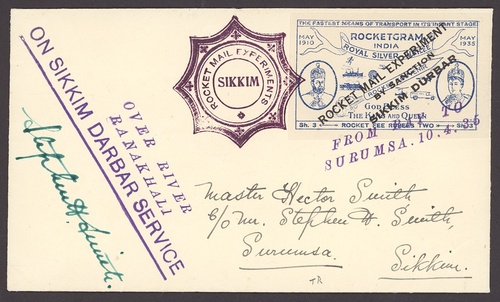 ON SIKKIM DARBAR SERVICE
OVER RIVER
RANAKHALI
Stephen H. Smith.
ROCKET MAIL EXPERIMENTS
SIKKIM
THE FASTEST MEANS OF TRANSPORT IN ITS INFANT STAGE
MAY
1910
ROCKETGRAM
INDIA
ROYAL SILVER
MAY
1935
ROCKET MAIL EXPERIMENT
BY SANCTION
SIKKIM DURBAR
THE KING AND QUEEN
Sh. 3
ROCKET FEE RUPEES TWO
Sh. 3
FROM
TO
SURUMSA. 10.4.35
Master Hector Smith
C/o Mr. Stephen H. Smith,
Surumsa.
Sikkim.
TR